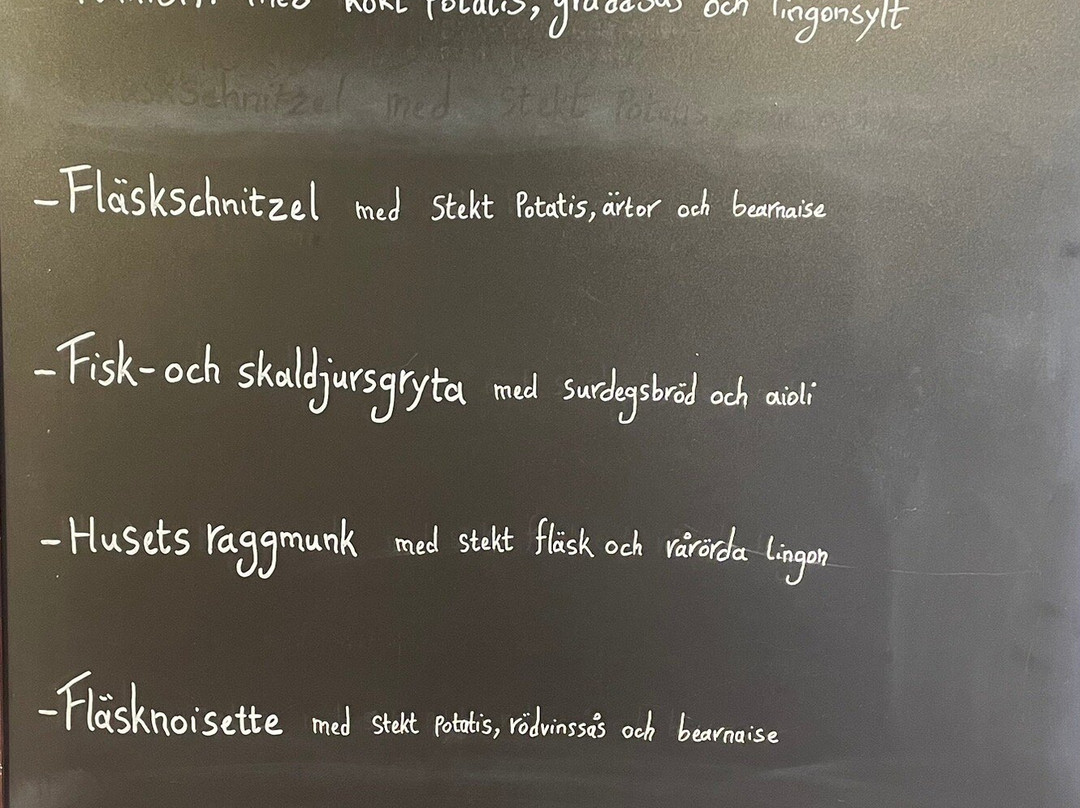 med kokt potatis, gräddsås och lingonsylt
schnitzel med Stekt Potatis,
- Fläskschnitzel med Stekt Potatis, ärtor och bearnaise
- Fisk- och skaldjursgryta med surdegsbröd och aioli
- Husets raggmunk med stekt fläsk och rårörda lingon
- Fläsknoisette med stekt potatis, rödvinssås och bearnaise